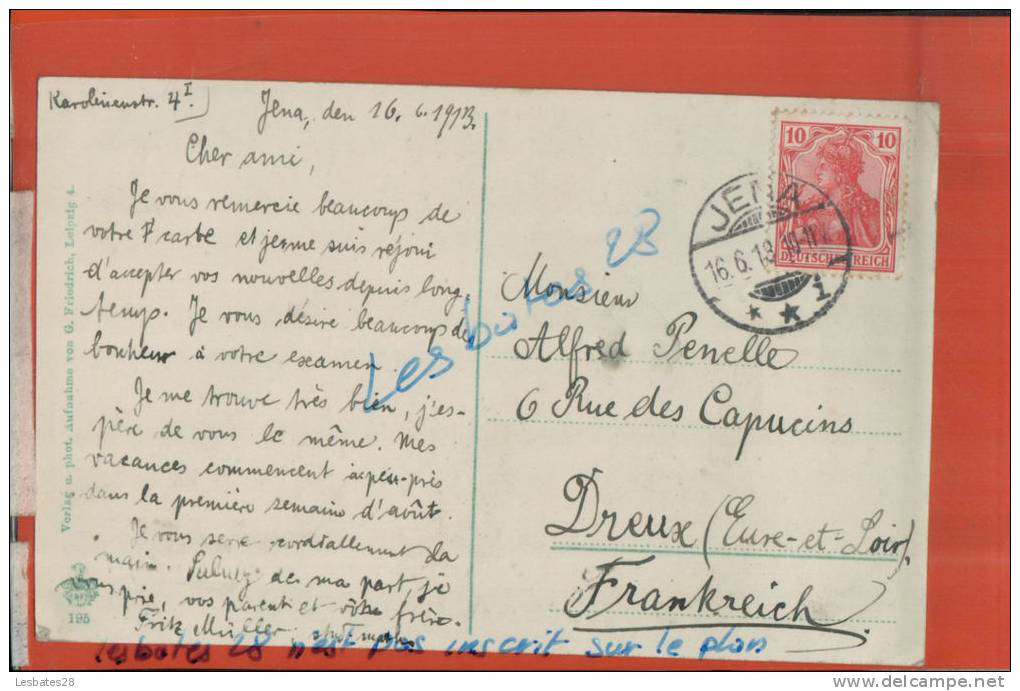 Karolinenstr. 4I
Jena, den 16. 6. 1913.
Cher ami,
Je vous remercie beaucoup de
votre carte et je me suis réjoui
d'accepter vos nouvelles depuis long-
temps. Je vous désire beaucoup de
bonheur à votre examen.
Je me trouve très bien, j'es-
père de vous le même. Mes
vacances commencent à peu-près
dans la première semaine d'août.
Je vous serre cordiallement la
main. Saluez de ma part, je
vous prie, vos parents et votre frère.
Fritz Müller,
Verlag u. phot. Aufnahme von G. Friedrich, Leipzig 4.
195
10 10
DEUTSCHES REICH
JENA
16.6.13. 10-11
* * 1
Monsieur
Alfred Penelle
6 Rue des Capucins
Dreux (Eure-et-Loir).
Frankreich
Lesbates 28
lesbates 28 n'est pas inscrit sur le plan
Lesbates28
www.delcampe.net